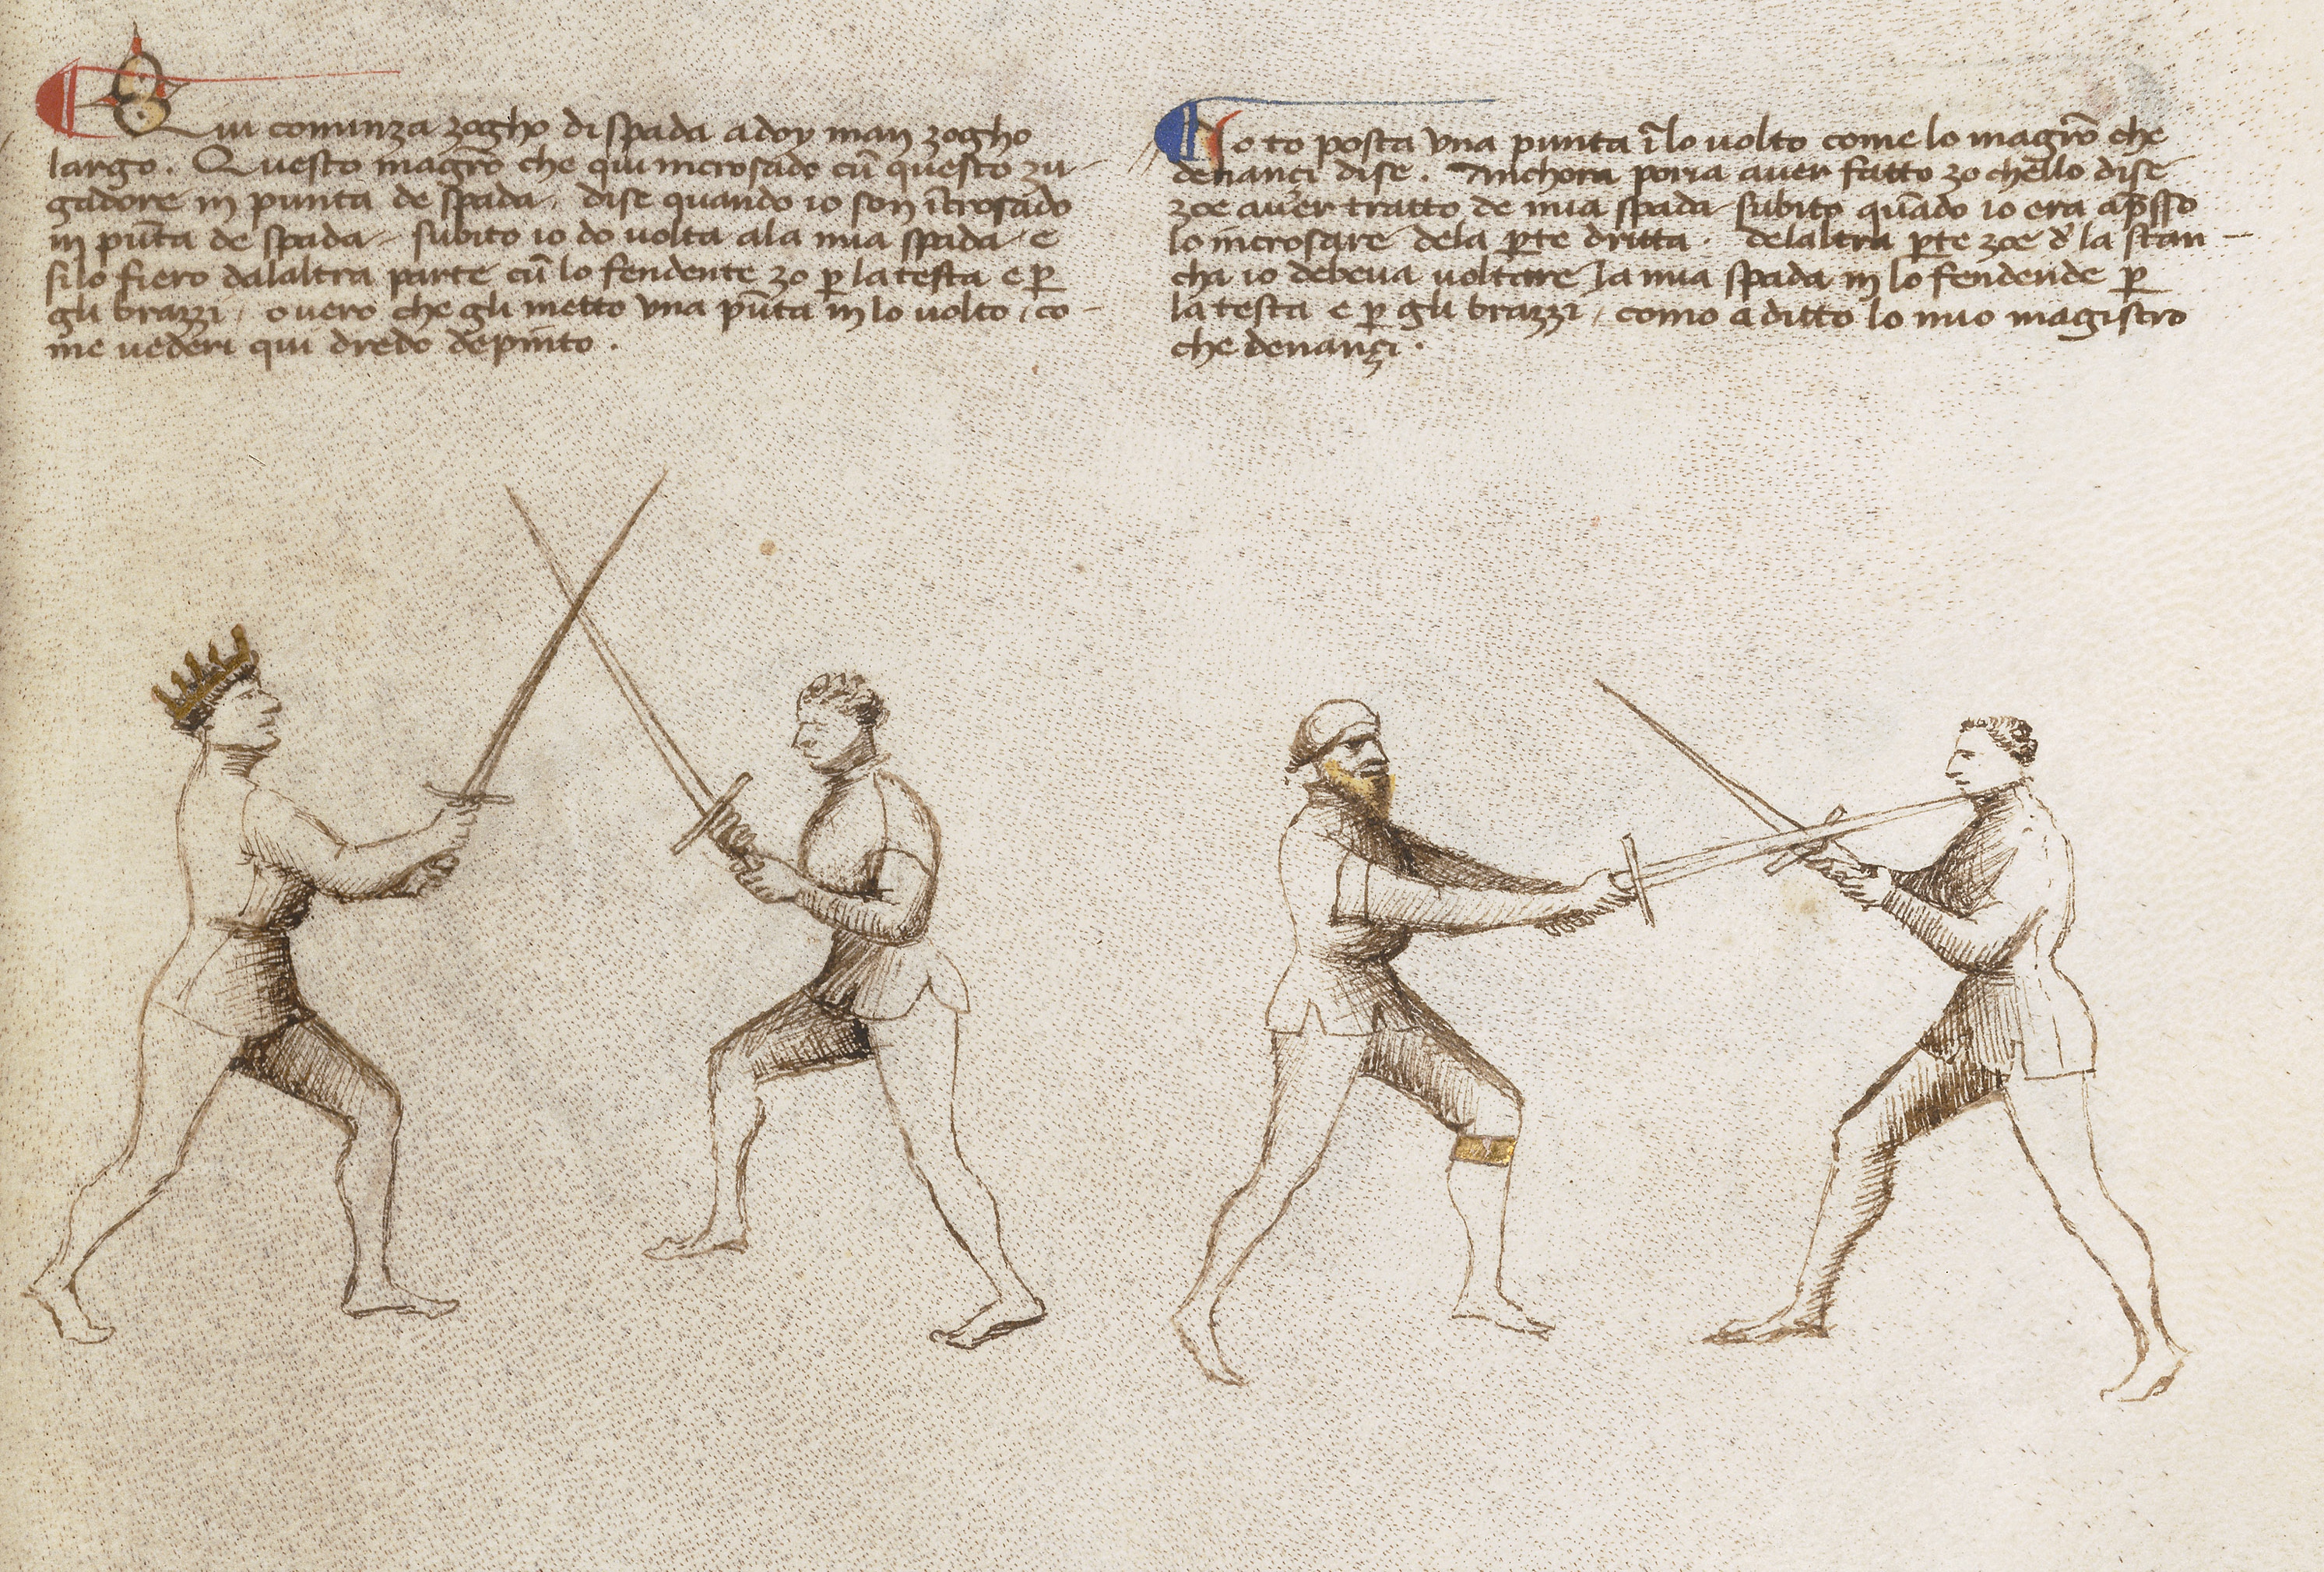 Qui cominza zogho di spada a doy man zogho
largo. Questo magr̄o che qui incrosado cū questo zu-
gadore in punta de spada. dise quando io son ĩcrosado
in pūta de spada subito io do volta ala mia spada e
si lo fiero dalaltra parte cū lo fendente zo p̲ la testa e p̲
gli brazzi, overo che gli metto una pūta in lo volto, co-
me vederi qui dredo depinto.
Io t'o posta una punta ĩ lo volto come lo magr̄o che
denançi dise. Anchora poria aver fatto zo chello dise
zoe aver tratto de mia spada subito quādo io era ap̲sso
lo incrosare dela p̲te dritta. delaltra p̲te zoe d' la stan-
cha io debeva voltare la mia spada in lo fendende p̲
la testa e p̲ gli brazzi, como a ditto lo mio magistro
che denançi.